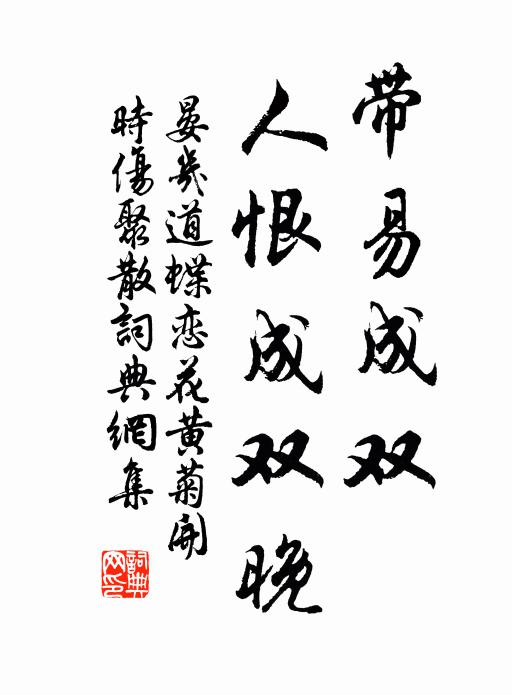 带易成双
人恨成双晚
晏几道蝶恋花黄菊開
時傷聚散詞典網集
詞典
网印